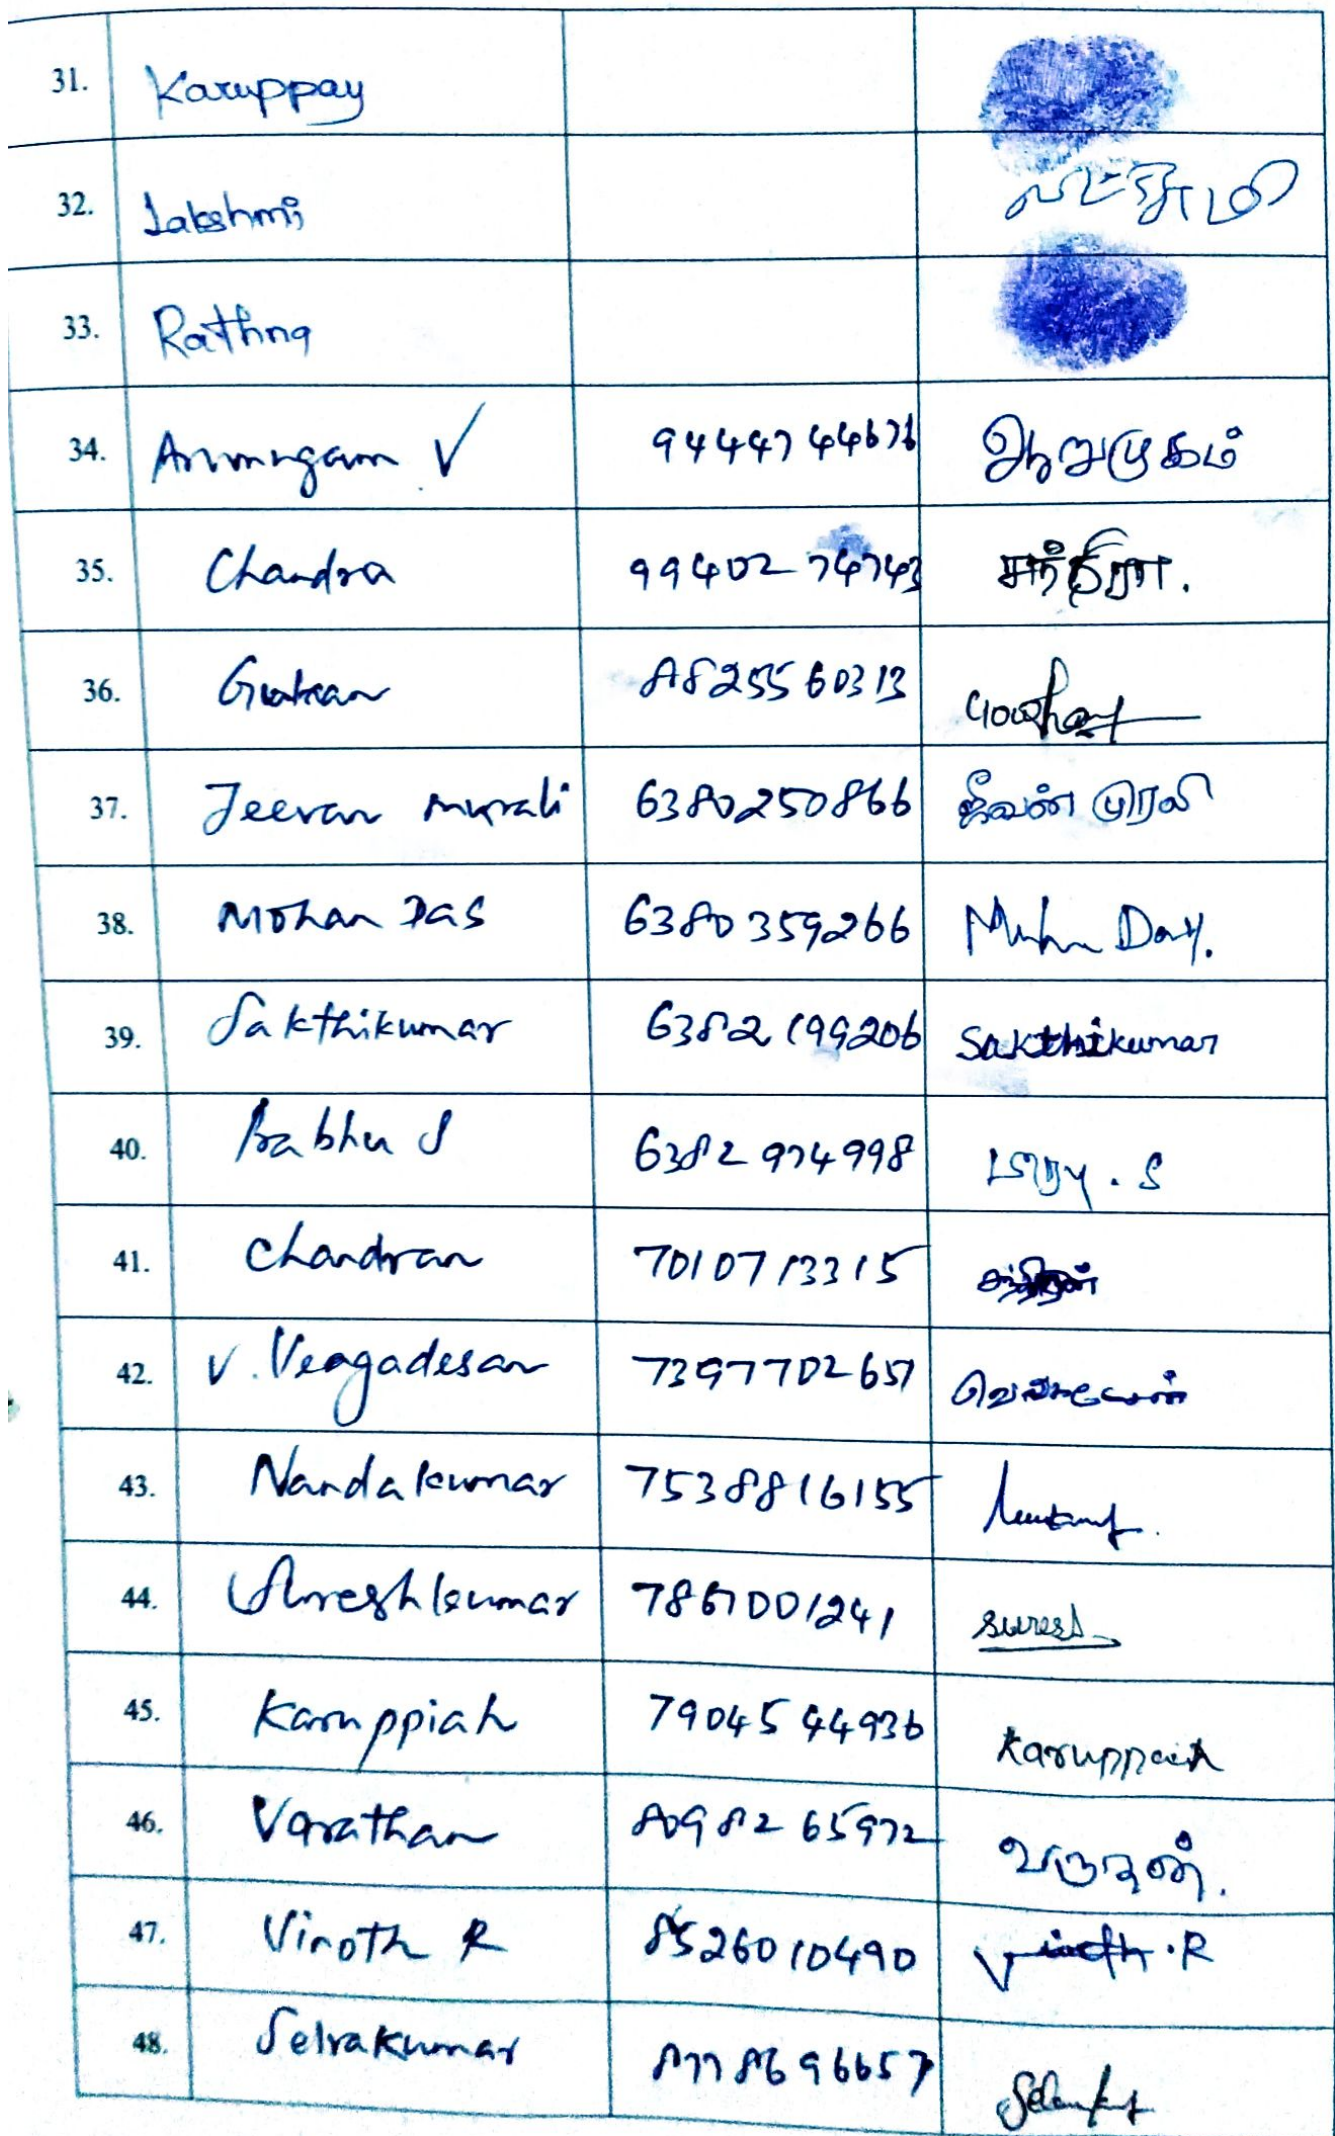 31. Karuppay
32. Lakshmi லட்சுமி
33. Rathna
34. Arumugam V 9444744676 ஆறுமுகம்
35. Chandra 9940274743 சந்திரா.
36. 8825560313
37. Jeevan murali 6380250866 ஜீவன் முரளி
38. Mohan Das 6380359266
39. Sakthikumar 6382199206 Sakthikumar
40. Prabhu S 6382974998 பிரபு . S
41. Chandran 7010713315 சந்திரன்
42. V. Vengadesan 7397702657
43. Nandakumar 7538816155
44. Sureshkumar 7867001241 suresh
45. Karuppiah 7904544936 Karuppaiah
46. Varathan 8098265972 வருதன்.
47. Vinoth R 8526010490 Vinoth . R
48. Selvakumar 8778696657